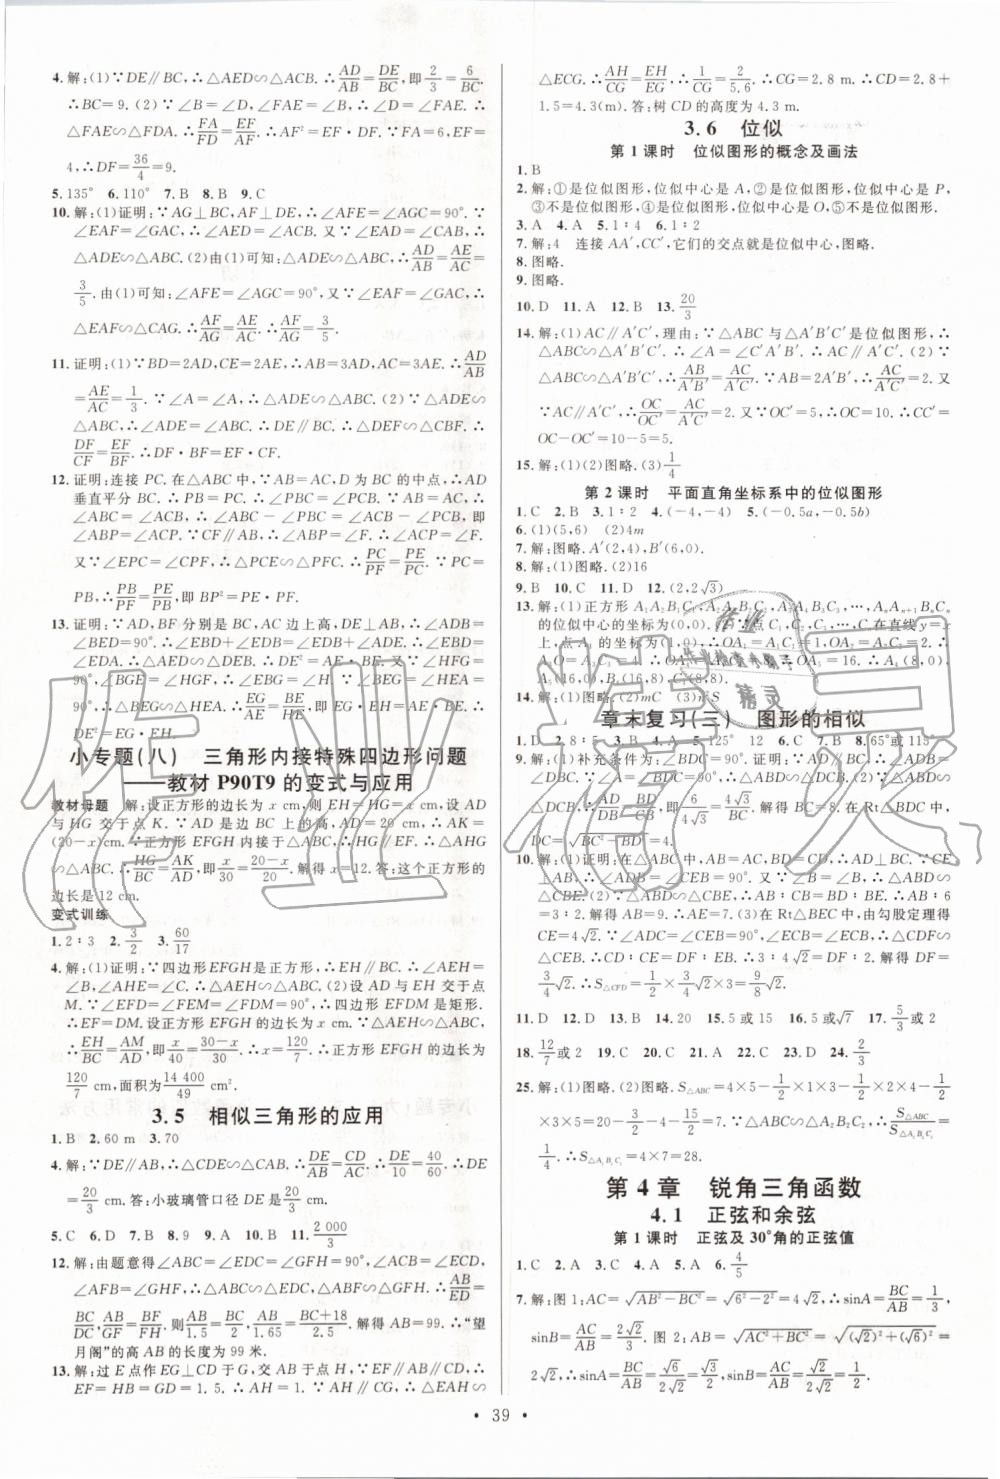 4.解:(1)∵DE∥BC,∴△AED∽△ACB.∴AD/AB=DE/BC,即2/3=6/BC.
∴BC=9.(2)∵∠B=∠D,∠FAE=∠B,∴∠D=∠FAE.∴
△FAE∽△FDA.∴FA/FD=EF/AF.∴AF²=EF·DF.∵AF=6,EF=
4,∴DF=36/4=9.
5.135° 6.110° 7.B 8.B 9.C
10.解:(1)证明:∵AG⊥BC,AF⊥DE,∴∠AFE=∠AGC=90°.∵
∠EAF=∠GAC,∴∠AED=∠ACB.又∵∠EAD=∠CAB,∴
△ADE∽△ABC.(2)由(1)可知:△ADE∽△ABC,∴AD/AB=AE/AC=
3/5.由(1)可知:∠AFE=∠AGC=90°,又∵∠EAF=∠GAC,∴
△EAF∽△CAG.∴AF/AG=AE/AC.∴AF/AG=3/5.
11.证明:(1)∵BD=2AD,CE=2AE,∴AB=3AD,AC=3AE.∴AD/AB
=AE/AC=1/3.∵∠A=∠A,∴△ADE∽△ABC.(2)∵△ADE∽
△ABC,∴∠ADE=∠ABC.∴DE∥BC.∴△DEF∽△CBF.∴
DF/CF=EF/BF.∴DF·BF=EF·CF.
12.证明:连接PC.在△ABC中,∵AB=AC,D为BC的中点,∴AD
垂直平分BC.∴PB=PC.∴∠PBC=∠PCB.∵AB=AC,∴
∠ABC=∠ACB.∴∠ABC-∠PBC=∠ACB-∠PCB,即
∠ABP=∠ACP.∵CF∥AB,∴∠ABP=∠F.∴∠ACP=∠F.
又∵∠EPC=∠CPF,∴△PCE∽△PFC.∴PC/PF=PE/PC.∵PC=
PB,∴PB/PF=PE/PB,即BP²=PE·PF.
13.证明:∵AD,BF分别是BC,AC边上高,∴∠ADB=
∠BED=90°.∴∠EBD+∠EDB=∠EDB+∠ADE.∴∠EBD=
∠EDA.∴△AED∽△DEB.∴DE²=AE·BE.又∵∠HFG=
90°,∠BGE=∠HGF,∴∠EBG=∠H.∵∠BEG=∠HEA=
90°,∴△BEG∽△HEA.∴EG/AE=BE/EH,即EG·EH=AE·BE.
∴DE²=EG·EH.
小专题(八) 三角形内接特殊四边形问题
——教材P90T9的变式与应用
教材母题 解:设正方形的边长为x cm,则EH=HG=x cm.设AD
与HG交于点K.∵AD是边BC上的高,AD=20 cm,∴AK=
(20-x)cm.∵正方形EFGH内接于△ABC,∴HG∥BC.∴△AHG
∽△ABC.∴HG/BC=AK/AD.∴x/30=20-x/20.解得x=12.答:这个正方形
的边长是12 cm.
变式训练
1.2∶3 2.3/2 3.60/17
4.解:(1)证明:∵四边形EFGH是正方形,∴EH∥BC.∴∠AEH=
∠B,∠AHE=∠C.∴△AEH∽△ABC.(2)设AD与EH交于点
M.∵∠EFD=∠FEM=∠FDM=90°,∴四边形EFDM是矩形.
∴EF=DM.设正方形EFGH的边长为x cm.∵△AEH∽△ABC,
∴EH/BC=AM/AD,即x/40=30-x/30.∴x=120/7.∴正方形EFGH的边长为
120/7 cm,面积为14 400/49 cm².
3.5 相似三角形的应用
1.B 2.60 m 3.70
4.解:∵DE∥AB,∴△CDE∽△CAB.∴DE/AB=CD/AC.∴DE/10=40/60.∴
DE=20/3 cm.答:小玻璃管口径DE是20/3 cm.
5.C 6.D 7.B 8.9 9.A 10.B 11.2 000/3
12.解:由题意得∠ABC=∠EDC=∠GFH=90°,∠ACB=∠ECD,
∠AFB=∠GHF.∴△ABC∽△EDC,△ABF∽△GFH.∴AB/ED=
BC/DC,AB/GF=BF/FH,即AB/1.5=BC/2,AB/1.65=BC+18/2.5.解得AB=99.∴“望
月阁”的高AB的长度为99米.
13.解:过E点作EG⊥CD于G,交AB于点H,∵EF∥AB∥CD,∴
EF=HB=GD=1.5.∴AH=1.∵AH∥CG,∴△AEH∽
△ECG.∴AH/CG=EH/EG.∴1/CG=2/5.6.∴CG=2.8 m.∴CD=2.8+
1.5=4.3(m).答:树CD的高度为4.3 m.
3.6 位似
第1课时 位似图形的概念及画法
1.B
2.解:①是位似图形,位似中心是A,②是位似图形,位似中心是P,
③不是位似图形,④是位似图形,位似中心是O,⑤不是位似图形.
3.A 4.A 5.1∶4 6.1∶2
7.解:4 连接AA′,CC′,它们的交点就是位似中心,图略.
8.图略.
9.图略.
10.D 11.A 12.B 13.20/3
14.解:(1)AC∥A′C′,理由:∵△ABC与△A′B′C′是位似图形,∴
△ABC∽△A′B′C′.∴∠A=∠C′A′B′.∴AC∥A′C′.(2)∵
△ABC∽△A′B′C′,∴AB/A′B′=AC/A′C′.∵AB=2A′B′,∴AC/A′C′=2.又
∵AC∥A′C′,∴OC/OC′=AC/A′C′=2.又∵OC′=5,∴OC=10.∴CC′=
OC-OC′=10-5=5.
15.解:(1)(2)图略.(3)1/4
第2课时 平面直角坐标系中的位似图形
1.C 2.B 3.1∶2 4.(-4,-4) 5.(-0.5a,-0.5b)
6.(1)(5,6) (2)4m
7.解:图略.A′(2,4),B′(6,0).
8.解:(1)图略.(2)16
9.B 10.C 11.D 12.(2,2√3)
的位似中心的坐标为(0,0).
章末复习(三) 图形的相似
1.C 2.8.5 3.B 4.B 5.B 6.125 7.C 8.65
9.解:(1)补充条件:∠BDC=90°.
10.解:(1)证明:在△ABC中,∵AB=AC,BD=CD,∴AD⊥BC.∵CE
11.D 12.D 13.B 14.20 15.5或15 16.5或√7 17.5/3或2
18.12/7或2 19.C 20.C 21.A 22.C 23.D 24.2/3
25.解:(1)图略.(2)图略.S△ABC=4×5-1/2×1×3-1/2×2×4-1/2
×3×5=20-3/2-4-15/2=7.∵△ABC∽△A₂B₂C₂,∴S△ABC/S△A₂B₂C₂=
1/4.∴S△A₂B₂C₂=4×7=28.
第4章 锐角三角函数
4.1 正弦和余弦
第1课时 正弦及30°角的正弦值
1.C 2.A 3.C 4.A 5.A 6.4/5
7.解:图1:AC=√AB²-BC²=√6²-2²=4√2,∴sinA=BC/AB=1/3,
sinB=AC/AB=2√2/3.图2:AB=√AC²+BC²=√(√2)²+(√6)²=
2√2,∴sinA=BC/AB=√6/2√2=√3/2,sinB=AC/AB=√2/2√2=1/2.
·39·